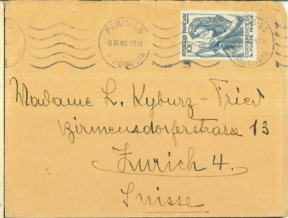 PARIS
Madame L. Kyburz-Tried
Birmensdorferstrasse 13
Zurich 4.
Suisse